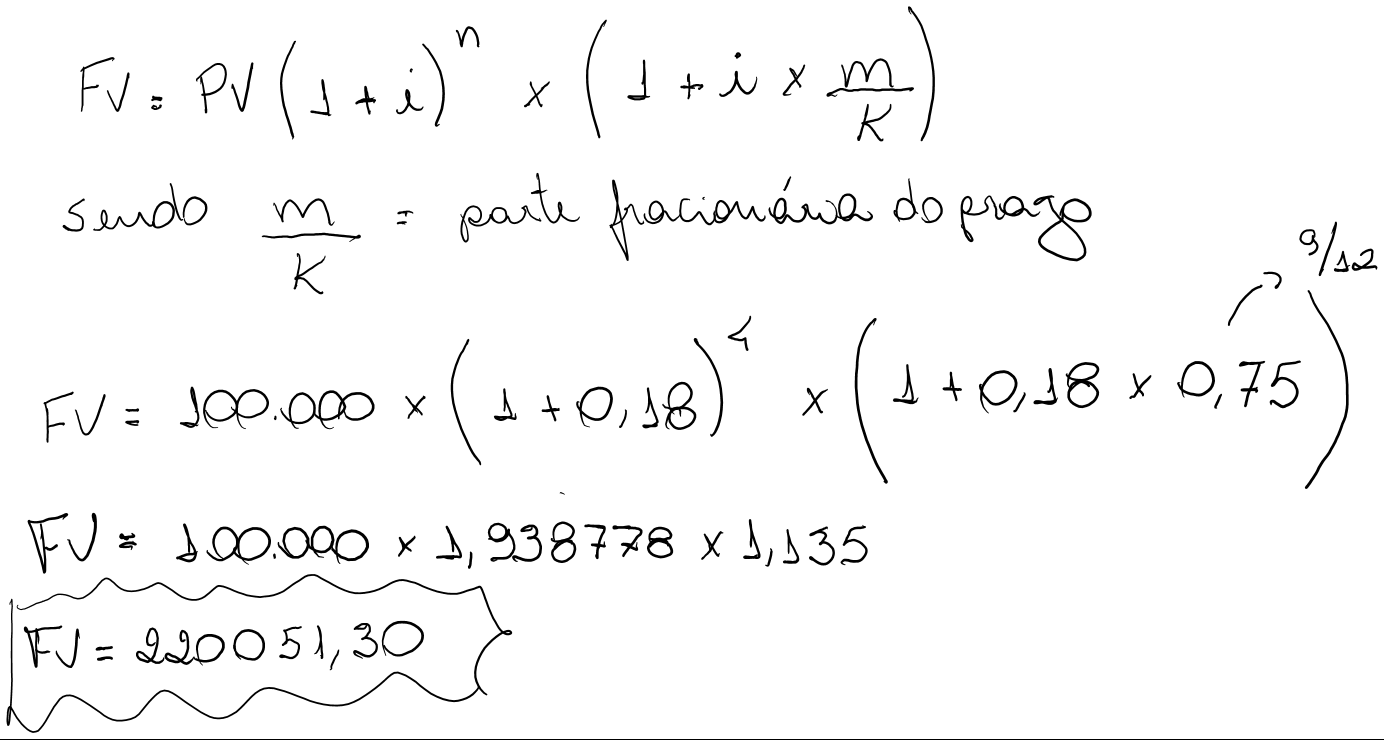 FV = PV (1 + i)^n x (1 + i x m/K)
sendo m/K = parte fracionária do prazo
9/12
FV = 100.000 x (1 + 0,18)^4 x (1 + 0,18 x 0,75)
FV = 100.000 x 1,938778 x 1,135
FV = 220051,30